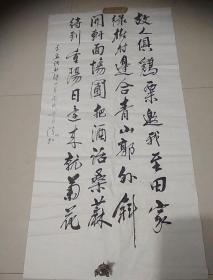 故人俱鸡粟邀我至田家
绿树村邊合青山郭外斜
開軒面場圃把酒话桑蔴
待到重陽日還来就菊花